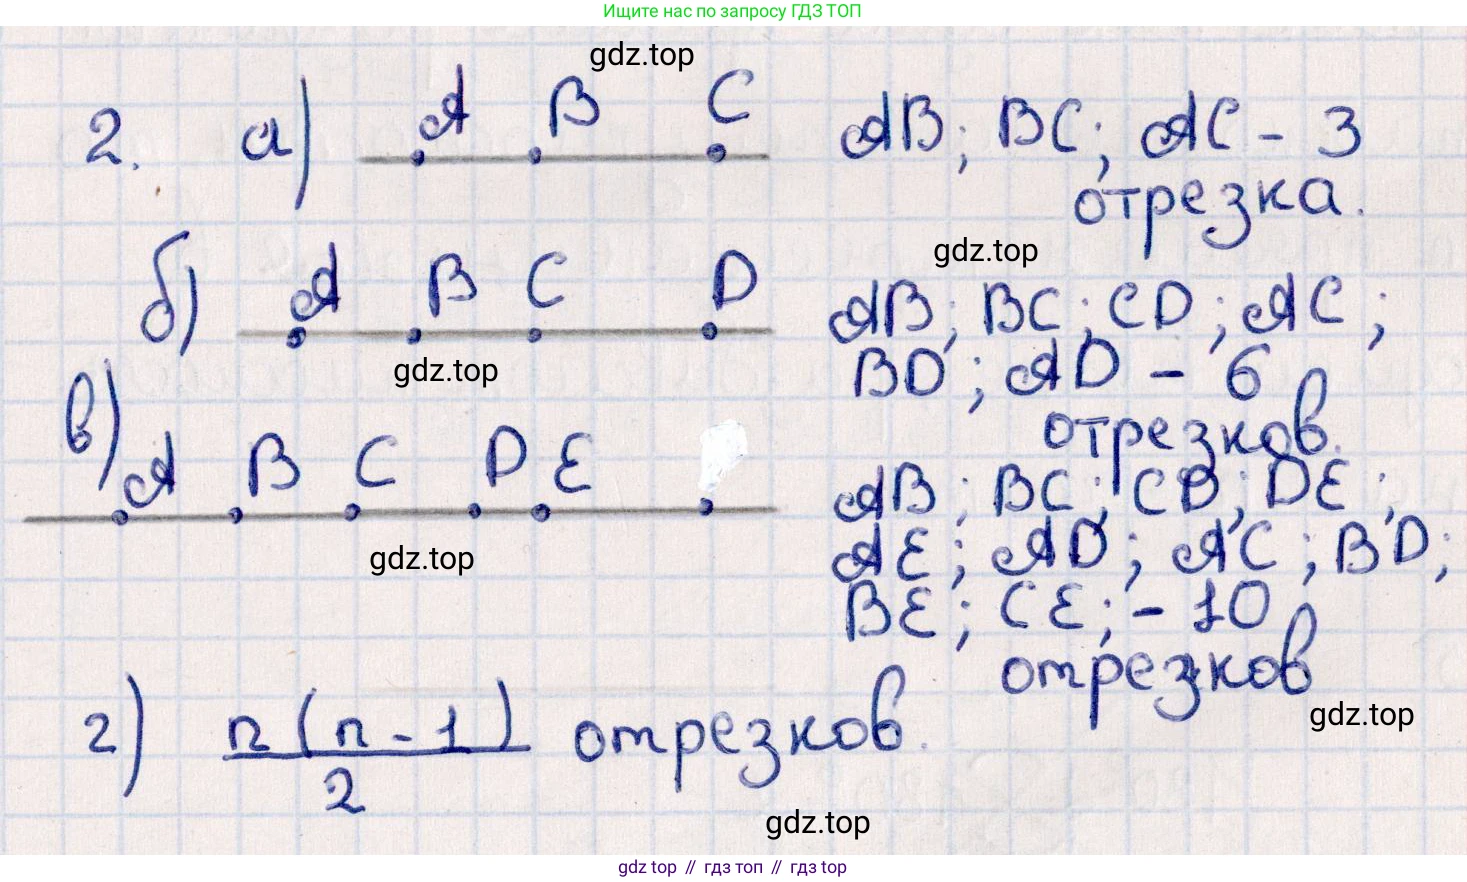 Ищите нас по запросу ГДЗ ТОП
gdz.top
2. а) A B C AB; BC; AC - 3
отрезка.
gdz.top
б) A B C D AB; BC; CD; AC;
BD; AD - 6
gdz.top
отрезков.
в) A B C D E AB; BC; CD; DE;
AE; AD; AC; BD;
gdz.top
BE; CE; - 10
отрезков
gdz.top
г) n(n-1) отрезков.
2
gdz.top
gdz top // гдз топ // гдз top